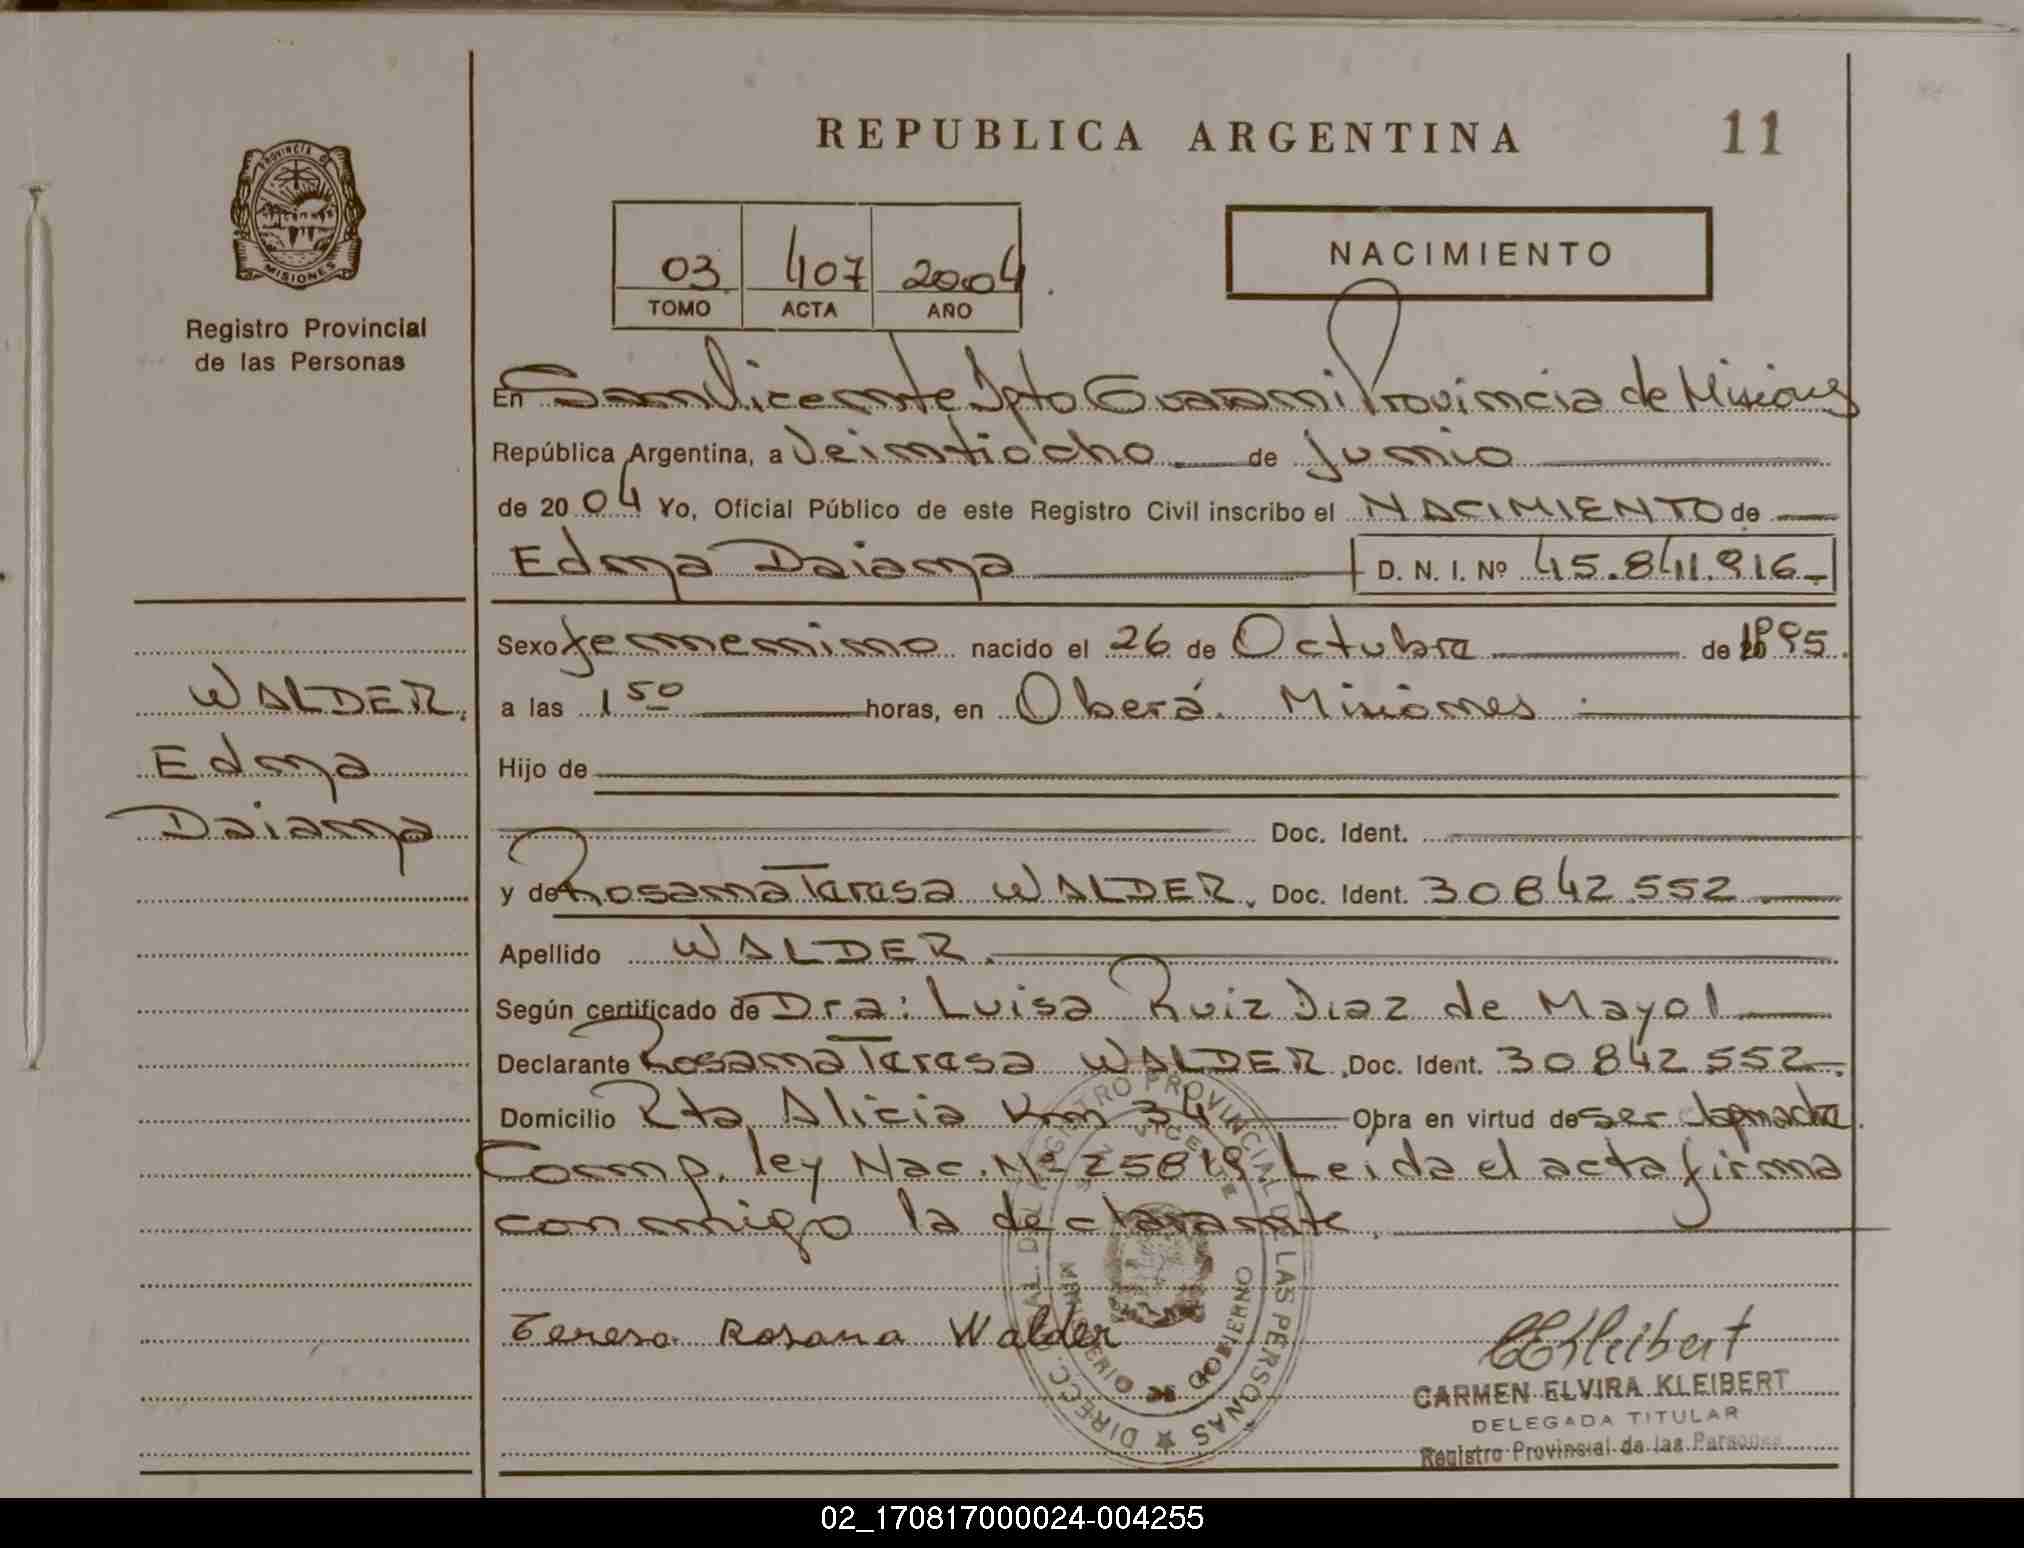 REPUBLICA ARGENTINA
11
PROVINCIA DE
MISIONES
Registro Provincial
de las Personas
03 407 2004
TOMO ACTA AÑO
NACIMIENTO
En San Vicente Dpto Guarani Provincia de Misiones
República Argentina, a Veintiocho de junio
de 2004 Yo, Oficial Público de este Registro Civil inscribo el NACIMIENTO de
Edna Daiana D. N. I. Nº 45.841.916
Sexo femenino nacido el 26 de Octubre de 1995.
a las 1 50 horas, en Oberá. Misiones
Hijo de
Doc. Ident.
y de Rosana Teresa WALDER. Doc. Ident. 30842552
Apellido WALDER.
Según certificado de Dra: Luisa Ruiz Diaz de Mayol
Declarante Rosana Teresa WALDER. Doc. Ident. 30842552
Domicilio Rta Alicia Km 34 Obra en virtud de ser la madre.
Comp. ley Nac. Nº 25819 Leida el acta firma
conmigo la declarante.
WALDER,
Edna
Daiana
Teresa Rosana Walder
CEKleibert
CARMEN ELVIRA KLEIBERT
DELEGADA TITULAR
Registro Provincial de las Personas
DIRECC. GRAL. DEL REGISTRO PROVINCIAL DE LAS PERSONAS
SAN VICENTE
MINISTERIO DE GOBIERNO
02_170817000024-004255